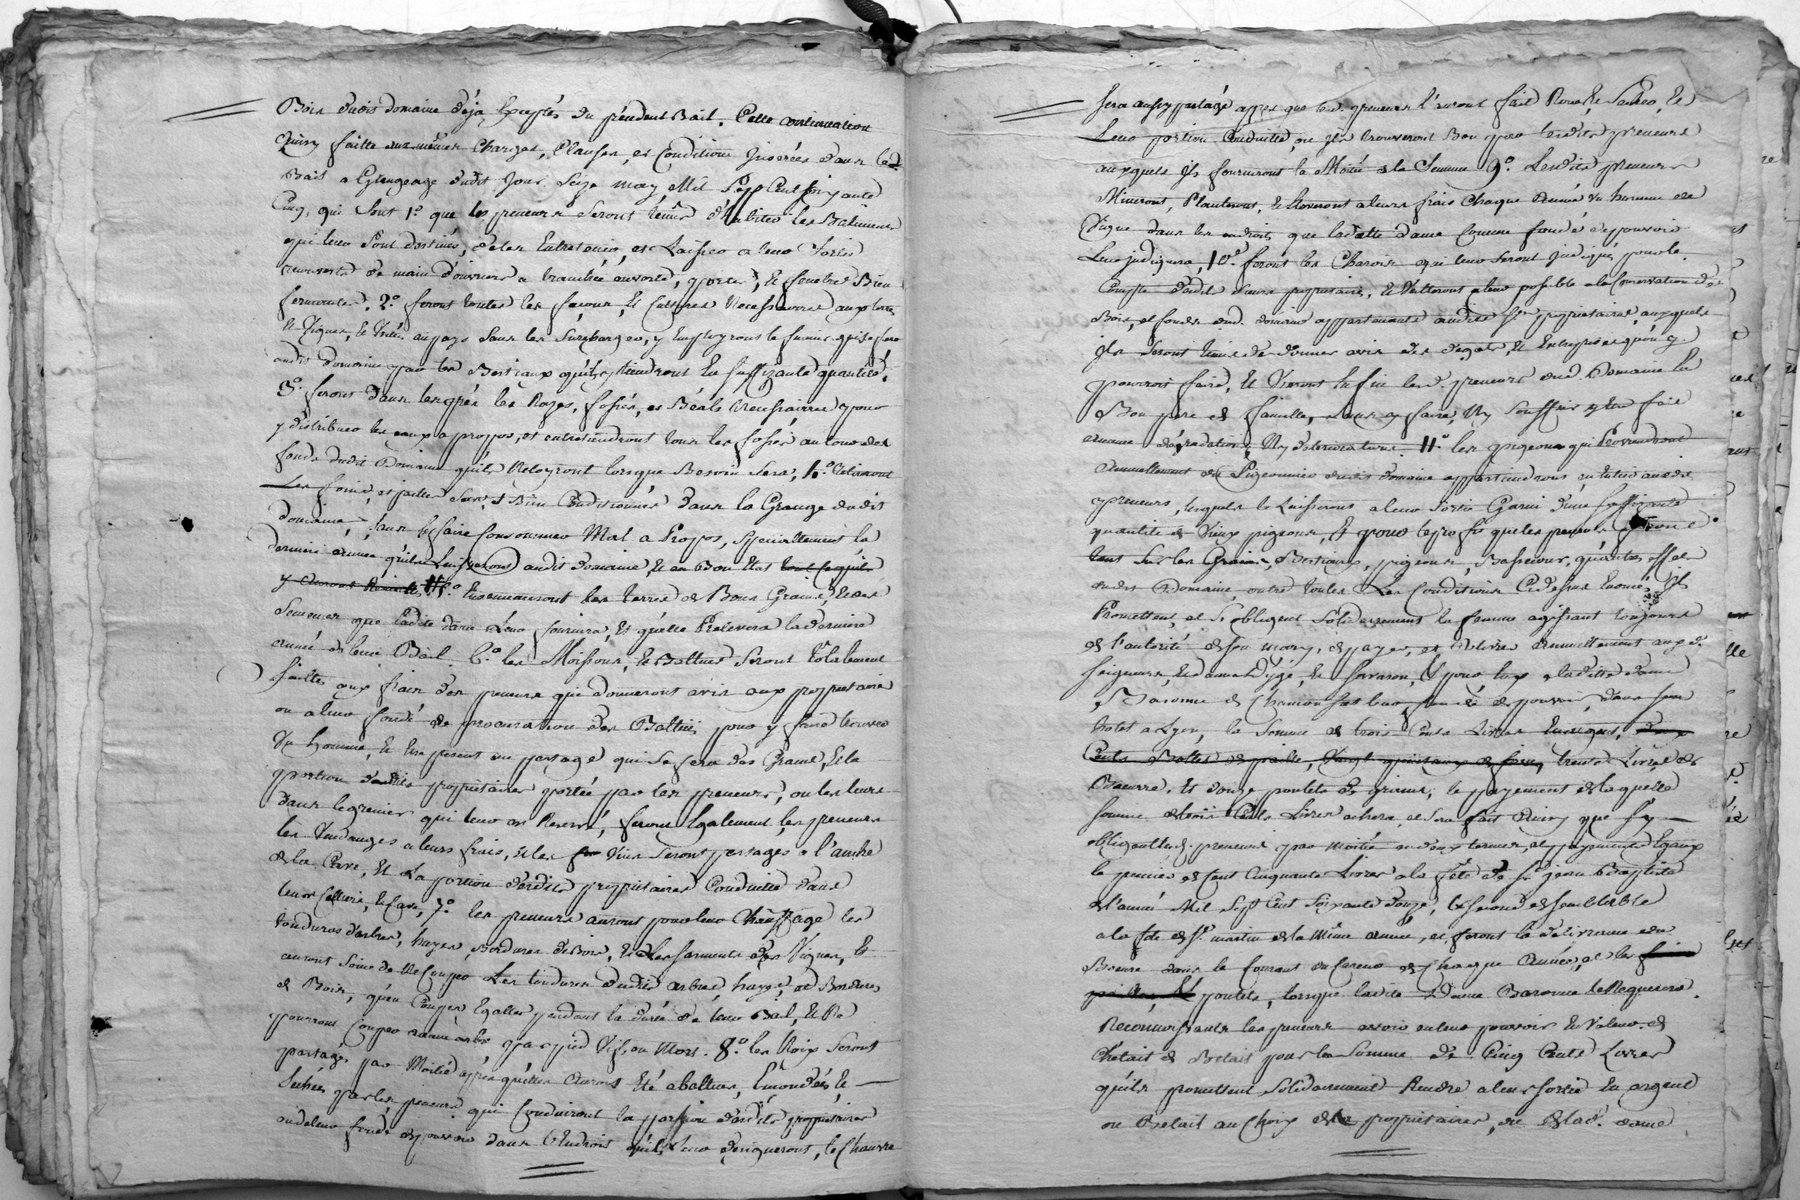 Bois dudit domaine déja Exceptés du précédent Bail. Cette continuation
Ainsy faitte aux mêmes Charges, Clauses, et Conditions Inserées dans led.
Bail a Grangeage dudit Jour Seize may Mil Sept Cent soixante
Cinq, qui sont 1.º que les preneurs seront tenus d'habiter les Batiments
qui leur sont destinés, de les Entretenir, et Laisser a leur sortie
recouverts de main d'ouvrier a tranchée ouverte, portes, et fenetres Bien
fermantes. 2.º feront toutes les façons, et Cultures Necessaires aux terres
et Vignes, et Prés au pays sans les Surcharger, y Employeront le fumier qui se fera
audit domaine par les Bestiaux qu'ils y tiendront En suffizante quantité.
3.º feront dans les prés les Razes, fossés, et Béals necessaires pour
y distribuer les eaux apropos, et entretiendront tous les fossés autour des
fonds dudit Domaine qu'ils Netoyront lorsque Besoin sera, 4.º Retireront
Les foins, et pailles Secs, et Bien Conditionnés dans la Grange dudit
domaine, sans les faire Consommer Mal a Propos, Specialement la
derniere année qu'ils Laisseront audit domaine, Et en Bon Etat tout ce qu'ils
y auront Recueilli 5.º Ensemenceront les terres de Bons Grains, Et des
Semences que ladite dame Leur fournira, Et qu'elle Prelevera la derniere
année de leur Bail. 6.º les Moissons, et Battues Seront totalement
faittes aux fraix des preneurs qui donneront avis aux proprietaires
ou a leur fondé de procuration des Batties pour y faire trouver
Un homme, Et Etre present au partage qui se fera des Grains, Et la
portion desdits proprietaires portée par les preneurs, ou les leurs
dans le grenier qui leur est Reservé, feront Egalement les preneurs
les Vendanges a leurs frais, et les Vins Seront partagés a l'anche
de la Cuve, et La portion desdits proprietaires Conduitte dans
leurs Celliers, et Cave, 7.º les preneurs auront pour leur Chauffage les
tondures d'arbres, hayes, Bordures de Bois, et Les sarments des Vignes, Et
auront Soin de ne Couper Les tondures desdits arbres, hayes, et Bordures
de Bois, qu'en Coupes Egalles pendant la durée de leur Bail, Et Ne
pourront Couper aucun arbre par pied Vif, ou Mort. 8.º les Noix Seront
partagés par Moitié après qu'elles auront Eté abattues, Emondées, Et
Sechées par les preneurs qui Conduiront la portion desdits proprietaires
ou de leur fondé de pouvoir dans l'Endroit qu'ils leur designeront, le Chanvre
sera aussy partagé apprés que led. preneurs l'auront fait Rouir, Et Sécher, Et
Leur portion Conduitte ou Ils trouveront Bon par lesdits preneurs
auxquels Ils fourniront la Moitié de la Semence 9.º Lesdits preneurs
Mineront, Planteront, Et Eleveront a leurs frais Chaque année Un homme de
Vigne dans les endroits que ladite dame Comme fondé de pouvoir
Leur indiquera, 10.º feront les Charois qui leur seront indiqués pour le
Compte desdits Sieurs proprietaires, Et Veilleront a leur possible a la Conservation des
Bois, et fonds dud. domaine appartenants auxdits Srs proprietaires auxquels
Ils seront tenus de donner avis des degats, et Entreprises qu'on y
pourroit faire, Et Vivront Enfin lesd. preneurs aud. Domaine En
Bon pere de famille, sans y faire, Ny Souffrir y Etre fait
aucune degradation, Ny deterioration. 11.º les pigeons qui Proviendront
Annuellement du Pigeonnier dudit domaine appartiendront en Entier auxdits
preneurs, lesquels le Laisseront a leur sortie Garni d'une suffizante
quantité de Vieux pigeons, Et pour le profit que les preneurs feront
tant sur les Grains, Bestiaux, pigeons, Bassecour, qu'autres effets
dudit Domaine, outre toutes Les Conditions Cy dessus Enoncé, Ils
Promettent, et S'obligent Solidairement la femme agissant toujours
de l'autorité de son mary, de payer, et Delivrer Annuellement auxd.
Seigneurs, et dame Dizé, et Savaron, Et pour Eux a ladite dame
Baronne de Chamousset leur fondé de pouvoir, dans son
hotel a Lyon, la Somme de trois Cents Livres En argent, deux
Cents Bottes de paille, Vingt quintaux de foin, trente Livres de
Beurre, Et douze poulets de Grains, le payement de laquelle
somme de trois Cents Livres a hera, et sera fait Ainsy que s'y
obligent lesd. preneurs par moitié en deux termes, et payements Egaux
le premier de Cent Cinquante Livres a la fête de St jean Baptiste
de l'année Mil Sept Cent Soixante Douze, le second de semblable
a la fete de St. martin de la Même année, et feront la délivrance du
Beurre dans le Courant du Careme de Chaque Année, et les foin
paille, et poulets, lorsque ladite Dame Baronne le Requerera.
Reconnoissants les preneurs avoir en leur pouvoir En Valeur de
Chétail de Betail pour la Somme de Cinq Cents Livres
qu'ils promettent Solidairement Rendre a leur sortie En argent
ou Betail au Choix des proprietaires, ou de lad. dame